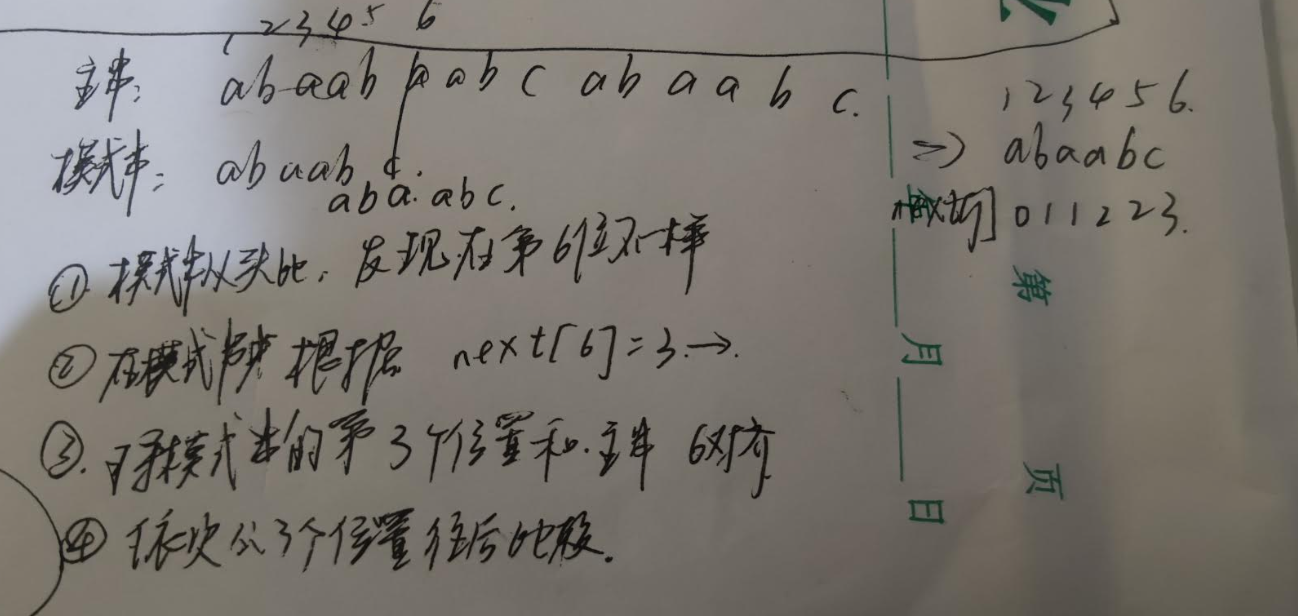 1 2 3 4 5 6
主串: abaab a abc abaabc.
模式串: abaab c.
abaabc.
① 模式串从头比,发现在第6位不一样
② 在模式串中根据 next[6]=3.→.
③. 将模式串的第3个位置和.主串6对齐
④ 依次从3个位置往后比较.
123456.
=> abaabc
next[j] 011223.
年
月
日
第
页